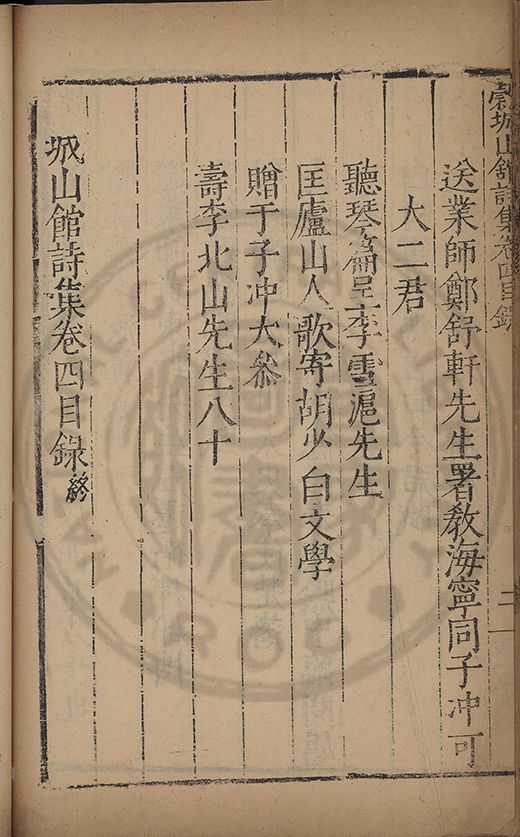 穀城山館詩集卷四目錄
二
送業師鄭舒軒先生署教海寧同子冲可
大二君
聽琴篇呈李雪滬先生
匡廬山人歌寄胡少白文學
贈于子冲大叅
壽李北山先生八十
城山館詩集卷四目錄終